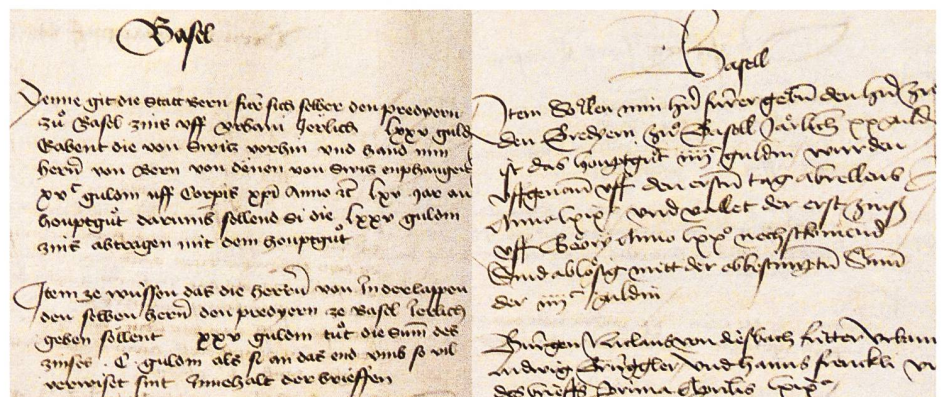 Basel
Denne git die Statt Bern fúr sich selber den predyern
zů Basel zins uff Urbani Jerlich lxxv guld
Gabent die von vorhin und hand min
hern von Bern von denen von enphangen
xv c guldin uff Corpis xpi Anno lxv Jar an
houptgůt darumb sollend si die lxxv guldin
zins abtragen mit dem houptgůt
Item ze wússen das die herrn von Inderlappen
den selben hern den predyern ze Basel Jerlich
geben sollent xxv guldin tůt die Sum des
zinses C guldin als si an das end umb so vil
verwiset sint Innehalt der brieffen
Basell
Item Sollen min hrn furer geben den hrn
den Bredyern zů Basell Järlich xx guldin
ist das houptgůt iiij c guldin wurden
uff den ersten tag abrellens
Anno lxix und vallet der erst zinß
uff Geory Anno lxx nechstkomend
Sind ablösig mitt der obbestimptten Sum
der iiij c guldin
Bürgen Niclaus von diesbach Ritter
Ludwig Brüggler und hanns frenckli
des brieffs prima Aprilis lxix